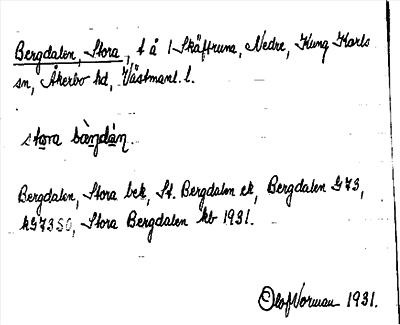 Bergdalen, Stora, t å 1 Skäftruna, Nedre, Kung Karls
sn, Åkerbo hd, Västmanl. l.
stora bàrjdàn.
Bergdalen, Stora bek, St. Bergdalen ek, Bergdalen G73,
kG73SO, Stora Bergdalen kb 1931.
Olof Norman 1931.